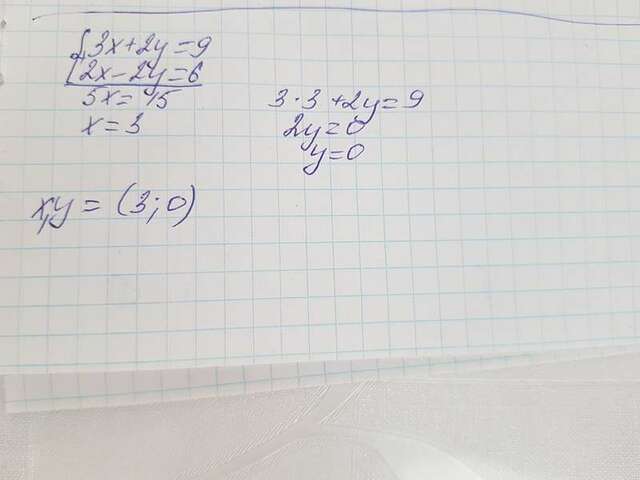 {3x+2y=9
2x-2y=6
5x=15
x=3
3·3+2y=9
2y=0
y=0
x,y = (3;0)